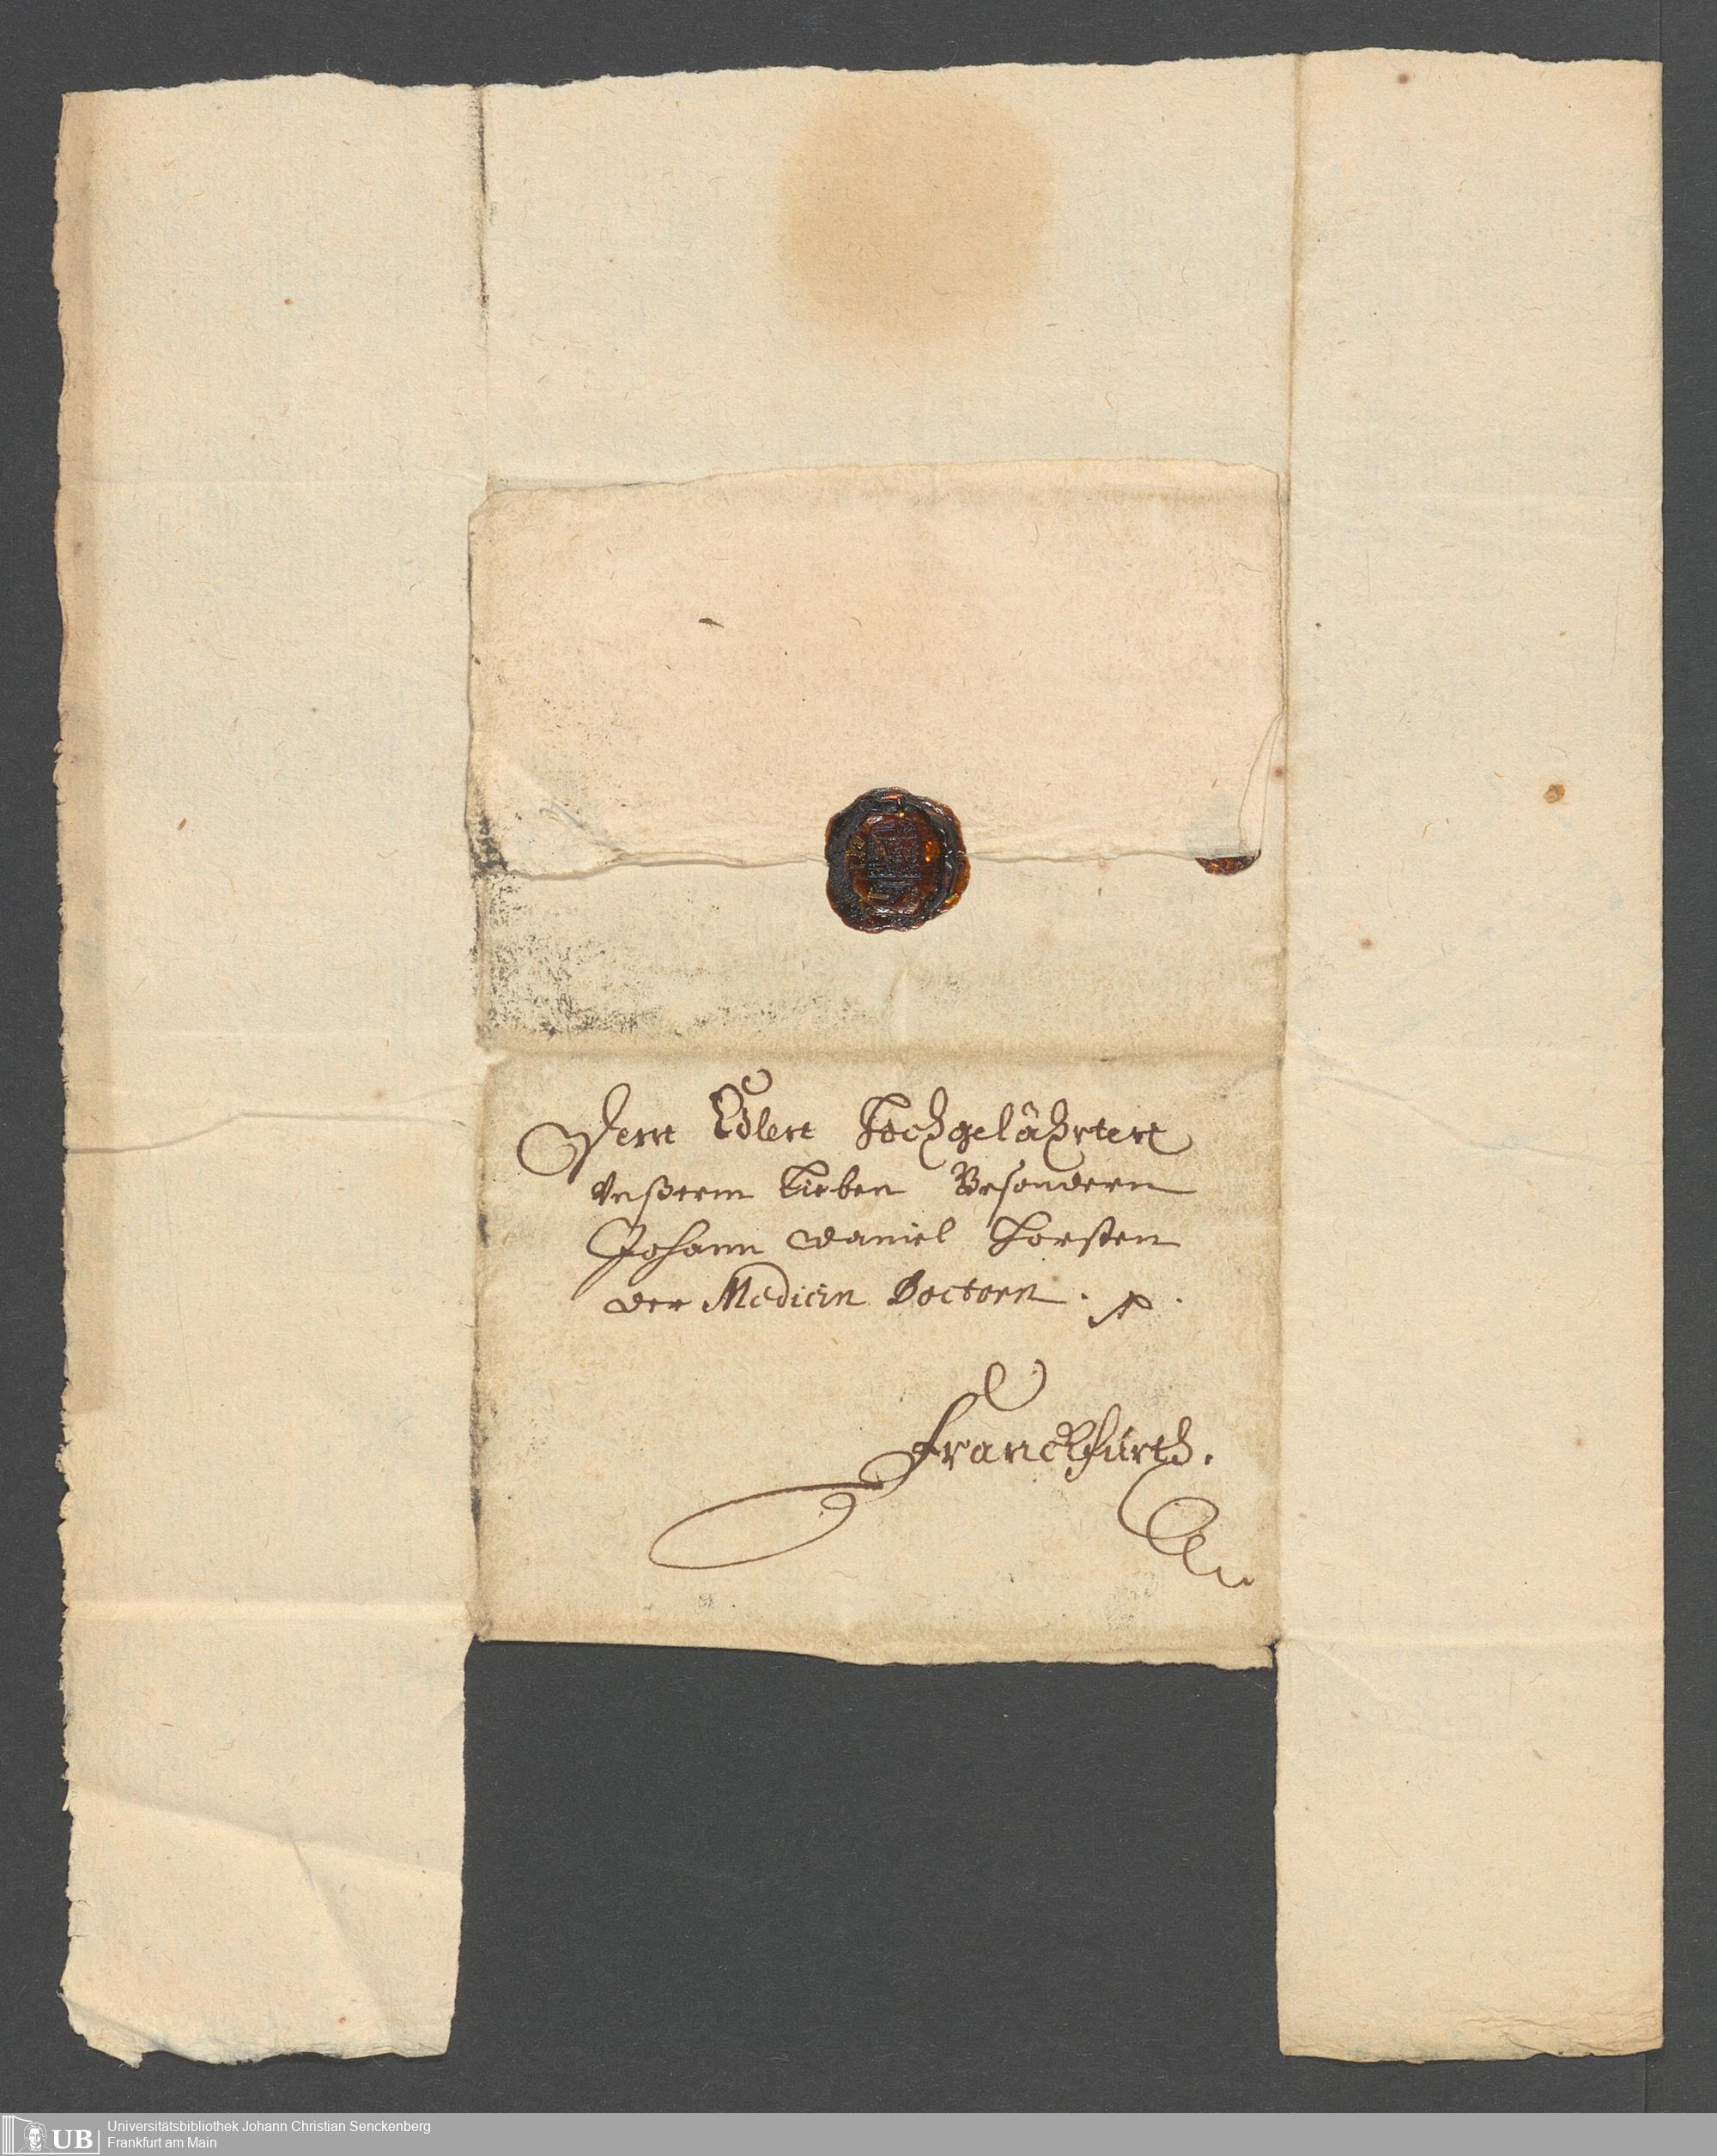 Dem Edlen Hochgelährten
Vnßerm Lieben Besondern
Johann Daniel Horsten
der Medicin Doctorn.
Franckfurth.
UB
Universitätsbibliothek Johann Christian Senckenberg
Frankfurt am Main